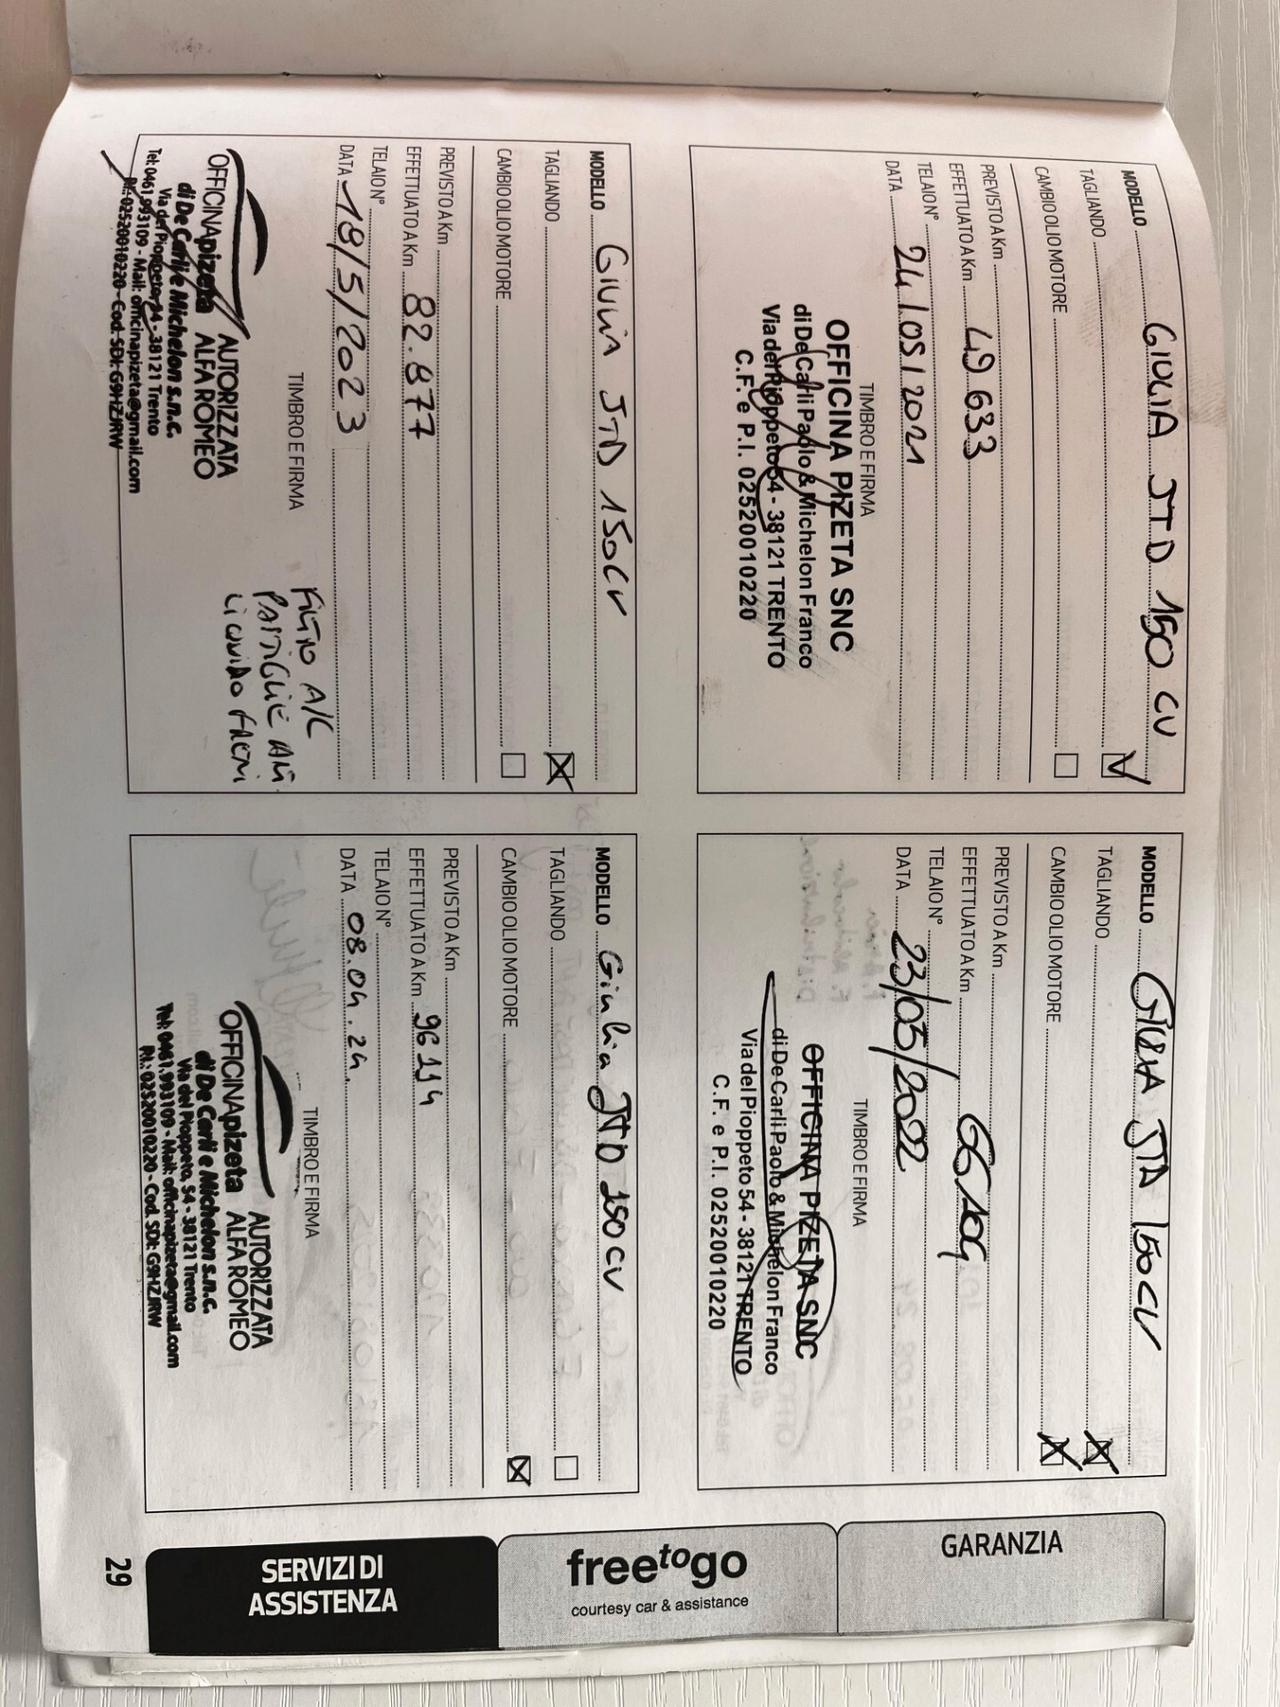 MODELLO GIULIA JTD 150 CV
TAGLIANDO
CAMBIO OLIO MOTORE
PREVISTO A Km
EFFETTUATO A Km 49 633
TELAIO N°
DATA 24/05/2021
TIMBRO E FIRMA
OFFICINA PIZETA SNC
di De Carli Paolo & Michelon Franco
Via del Pioppeto 54 - 38121 TRENTO
C.F. e P.I. 02520010220
MODELLO GIULIA JTD 150CV
TAGLIANDO
CAMBIO OLIO MOTORE
PREVISTO A Km
EFFETTUATO A Km 66109
TELAIO N°
DATA 23/05/2022
TIMBRO E FIRMA
OFFICINA PIZETA SNC
di De Carli Paolo & Michelon Franco
Via del Pioppeto 54 - 38121 TRENTO
C.F. e P.I. 02520010220
MODELLO GIULIA JTD 150CV
TAGLIANDO
CAMBIO OLIO MOTORE
PREVISTO A Km
EFFETTUATO A Km 82.877
TELAIO N°
DATA 18/5/2023
TIMBRO E FIRMA
FILTRO A/C
PASTIGLIE ANT.
LIQUIDO FRENI
OFFICINApizeta AUTORIZZATA
ALFA ROMEO
di De Carli e Michelon s.n.c.
Via del Pioppeto, 54 - 38121 Trento
Tel: 0461.993109 - Mail: officinapizeta@gmail.com
P.I.: 02520010220 - Cod. SDI: G9HZJRW
MODELLO Giulia JTD 150CV
TAGLIANDO
CAMBIO OLIO MOTORE
PREVISTO A Km
EFFETTUATO A Km 96114
TELAIO N°
DATA 08.04.24.
TIMBRO E FIRMA
OFFICINApizeta AUTORIZZATA
ALFA ROMEO
di De Carli e Michelon s.n.c.
Via del Pioppeto, 54 - 38121 Trento
Tel: 0461.993109 - Mail: officinapizeta@gmail.com
P.I.: 02520010220 - Cod. SDI: G9HZJRW
GARANZIA
freetogo
courtesy car & assistance
SERVIZI DI
ASSISTENZA
29